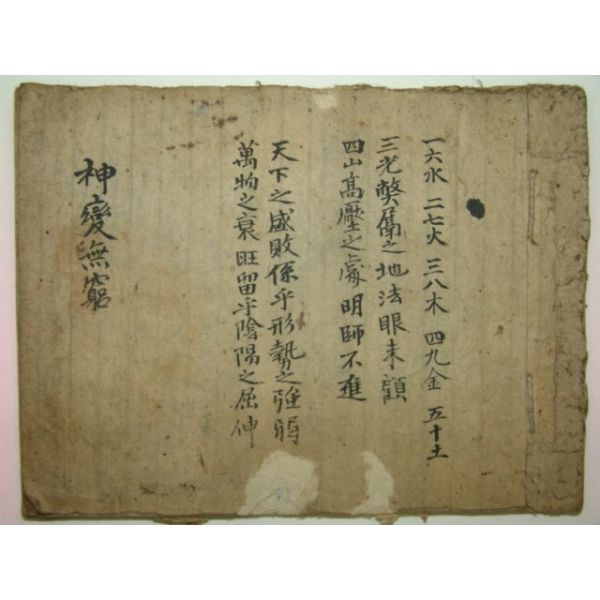 一六水 二七火 三八木 四九金 五十土
三光獘屬之地法眼未顧
四山高壓之處明師不進
天下之盛敗係乎形勢之強弱
萬物之衰旺留乎陰陽之屈伸
神變無窮